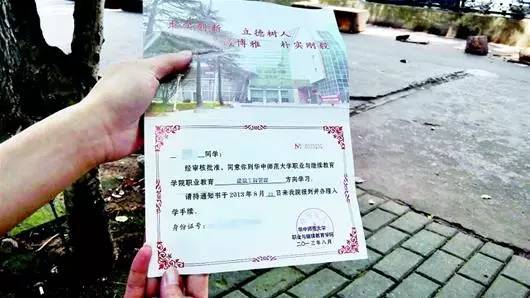 求实创新 立德树人
博雅 朴实刚毅
同学:
经审核批准,同意你到华中师范大学职业与继续教育
学院职业教育 建筑工程管理 方向学习。
请持通知书于2013年8月 日来我院报到并办理入
学手续。
身份证号:
华中师范大学
职业与继续教育学院
二〇一三年八月